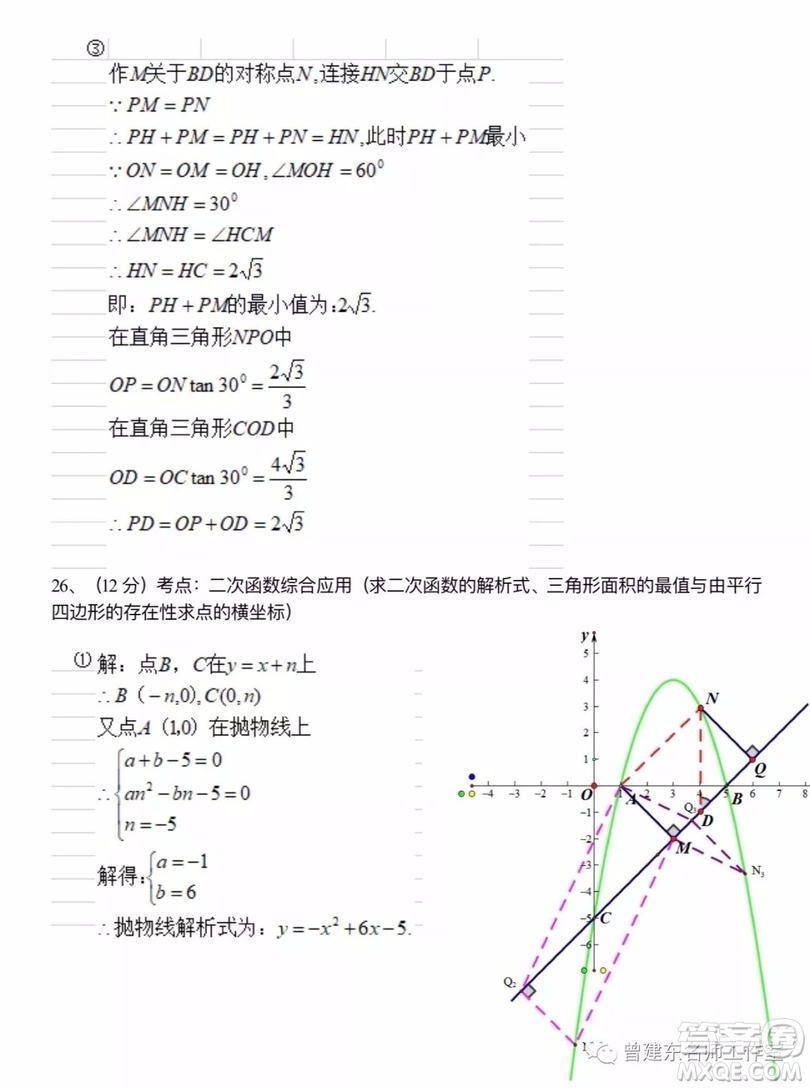 ③
作M关于BD的对称点N,连接HN交BD于点P.
∵PM=PN
∴PH+PM=PH+PN=HN,此时PH+PM最小
∵ON=OM=OH,∠MOH=60⁰
∴∠MNH=30⁰
∴∠MNH=∠HCM
∴HN=HC=2√3
即：PH+PM的最小值为：2√3.
在直角三角形NPO中
OP=ON tan 30⁰=2√3/3
在直角三角形COD中
OD=OC tan 30⁰=4√3/3
∴PD=OP+OD=2√3
26、（12 分）考点：二次函数综合应用（求二次函数的解析式、三角形面积的最值与由平行
四边形的存在性求点的横坐标）
① 解：点B，C在y=x+n上
∴B（-n,0),C(0,n)
又点A（1,0）在抛物线上
∴{a+b-5=0
an²-bn-5=0
n=-5
解得:{a=-1
b=6
∴抛物线解析式为：y=-x²+6x-5.
y
5
4
3
2
1
-4 -3 -2 -1 O 1 A 2 3 4 5 B 6 7 8
-1
-2
-3
-4
-5 C
-6
N
Q
Q₃ D
M
N₃
Q₂
曾建东名师工作室
答案圈
MXQE.COM